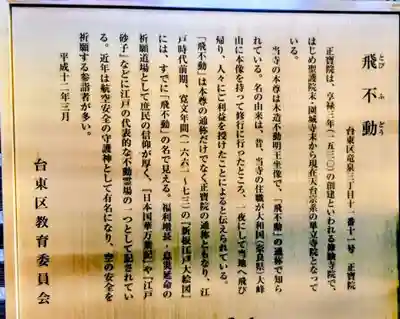 とび ふ どう
飛不動
台東区竜泉三丁目十一番十一号 正寶院
正寶院は、享禄三年(一五三〇)の創建といわれる修験寺院で、
はじめ聖護院末・園城寺末から現在天台宗系の単立寺院となって
いる。
当寺の本尊は木造不動明王坐像で、「飛不動」の通称で知ら
れている。名の由来は、昔、当寺の住職が大和国(奈良県)大峰
山に本像を持って修行に行ったところ、一夜にして当地へ飛び
帰り、人々にご利益を授けたことによると伝えられている。
「飛不動」は本尊の通称だけでなく正寶院の通称ともなり、江
戸時代前期、寛文年間(一六六一~七三)の『新板江戸大絵図』
には、すでに「飛不動」の名で見える。福利増長・息災延命の
祈願道場として庶民の信仰が厚く、『日本国華万葉記』や『江戸
砂子』などに江戸の代表的な不動霊場の一つとして記されてい
る。近年は航空安全の守護神として有名になり、空の安全を
祈願する参詣者が多い。
平成十二年三月
台東区教育委員会